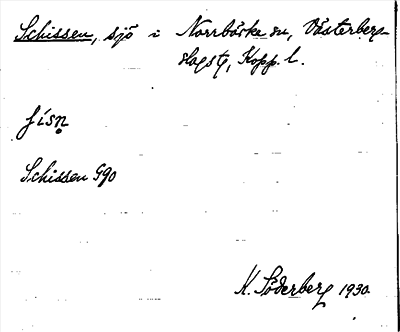 Schissen, sjö i Norrbärke sn, Västerbergs-
slags tg, Kopp. l.
fisṇ
Schissen G90
K. Söderberg 1930